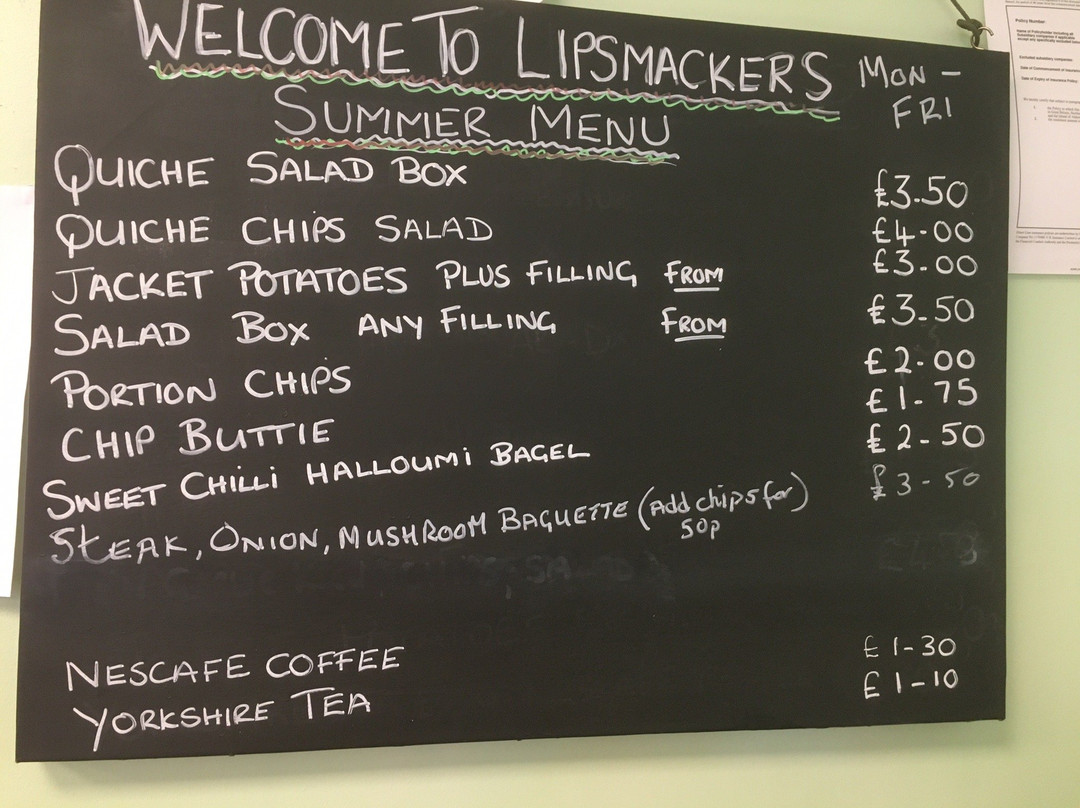 WELCOME TO LIPSMACKERS MON -
FRI
SUMMER MENU
QUICHE SALAD BOX £3.50
QUICHE CHIPS SALAD £4-00
JACKET POTATOES PLUS FILLING FROM £3-00
SALAD BOX ANY FILLING FROM £3-50
PORTION CHIPS £2-00
CHIP BUTTIE £1-75
SWEET CHILLI HALLOUMI BAGEL £2-50
STEAK, ONION, MUSHROOM BAGUETTE (Add chips for) £3-50
50p
NESCAFE COFFEE £1-30
YORKSHIRE TEA £1-10
Policy Number